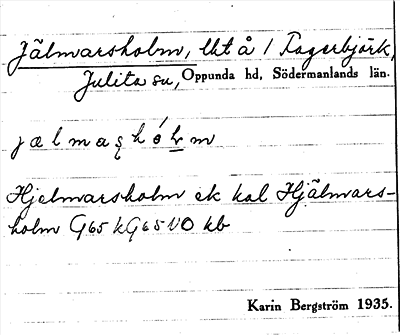 Jälmarsholm, lht å / Fagerbjörk,
Julita sn, Oppunda hd, Södermanlands län.
jælmaʂhólm
Hjelmarsholm ek kal Hjälmars-
holm G65 kG65NO kb
Karin Bergström 1935.